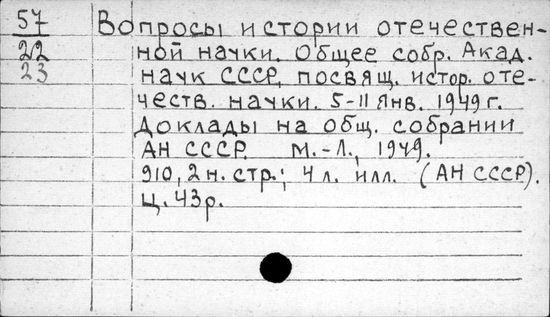 57 Вопросы истории отечествен-
22 ной науки. Общее собр. Акад.
23 наук СССР, посвящ. истор. оте-
честв. науки. 5-11 Янв. 1949 г.
Доклады на общ. собрании
АН СССР. М.-Л., 1949.
910, 2 н. стр.; 4 л. илл. (АН СССР).
Ц. 43 р.